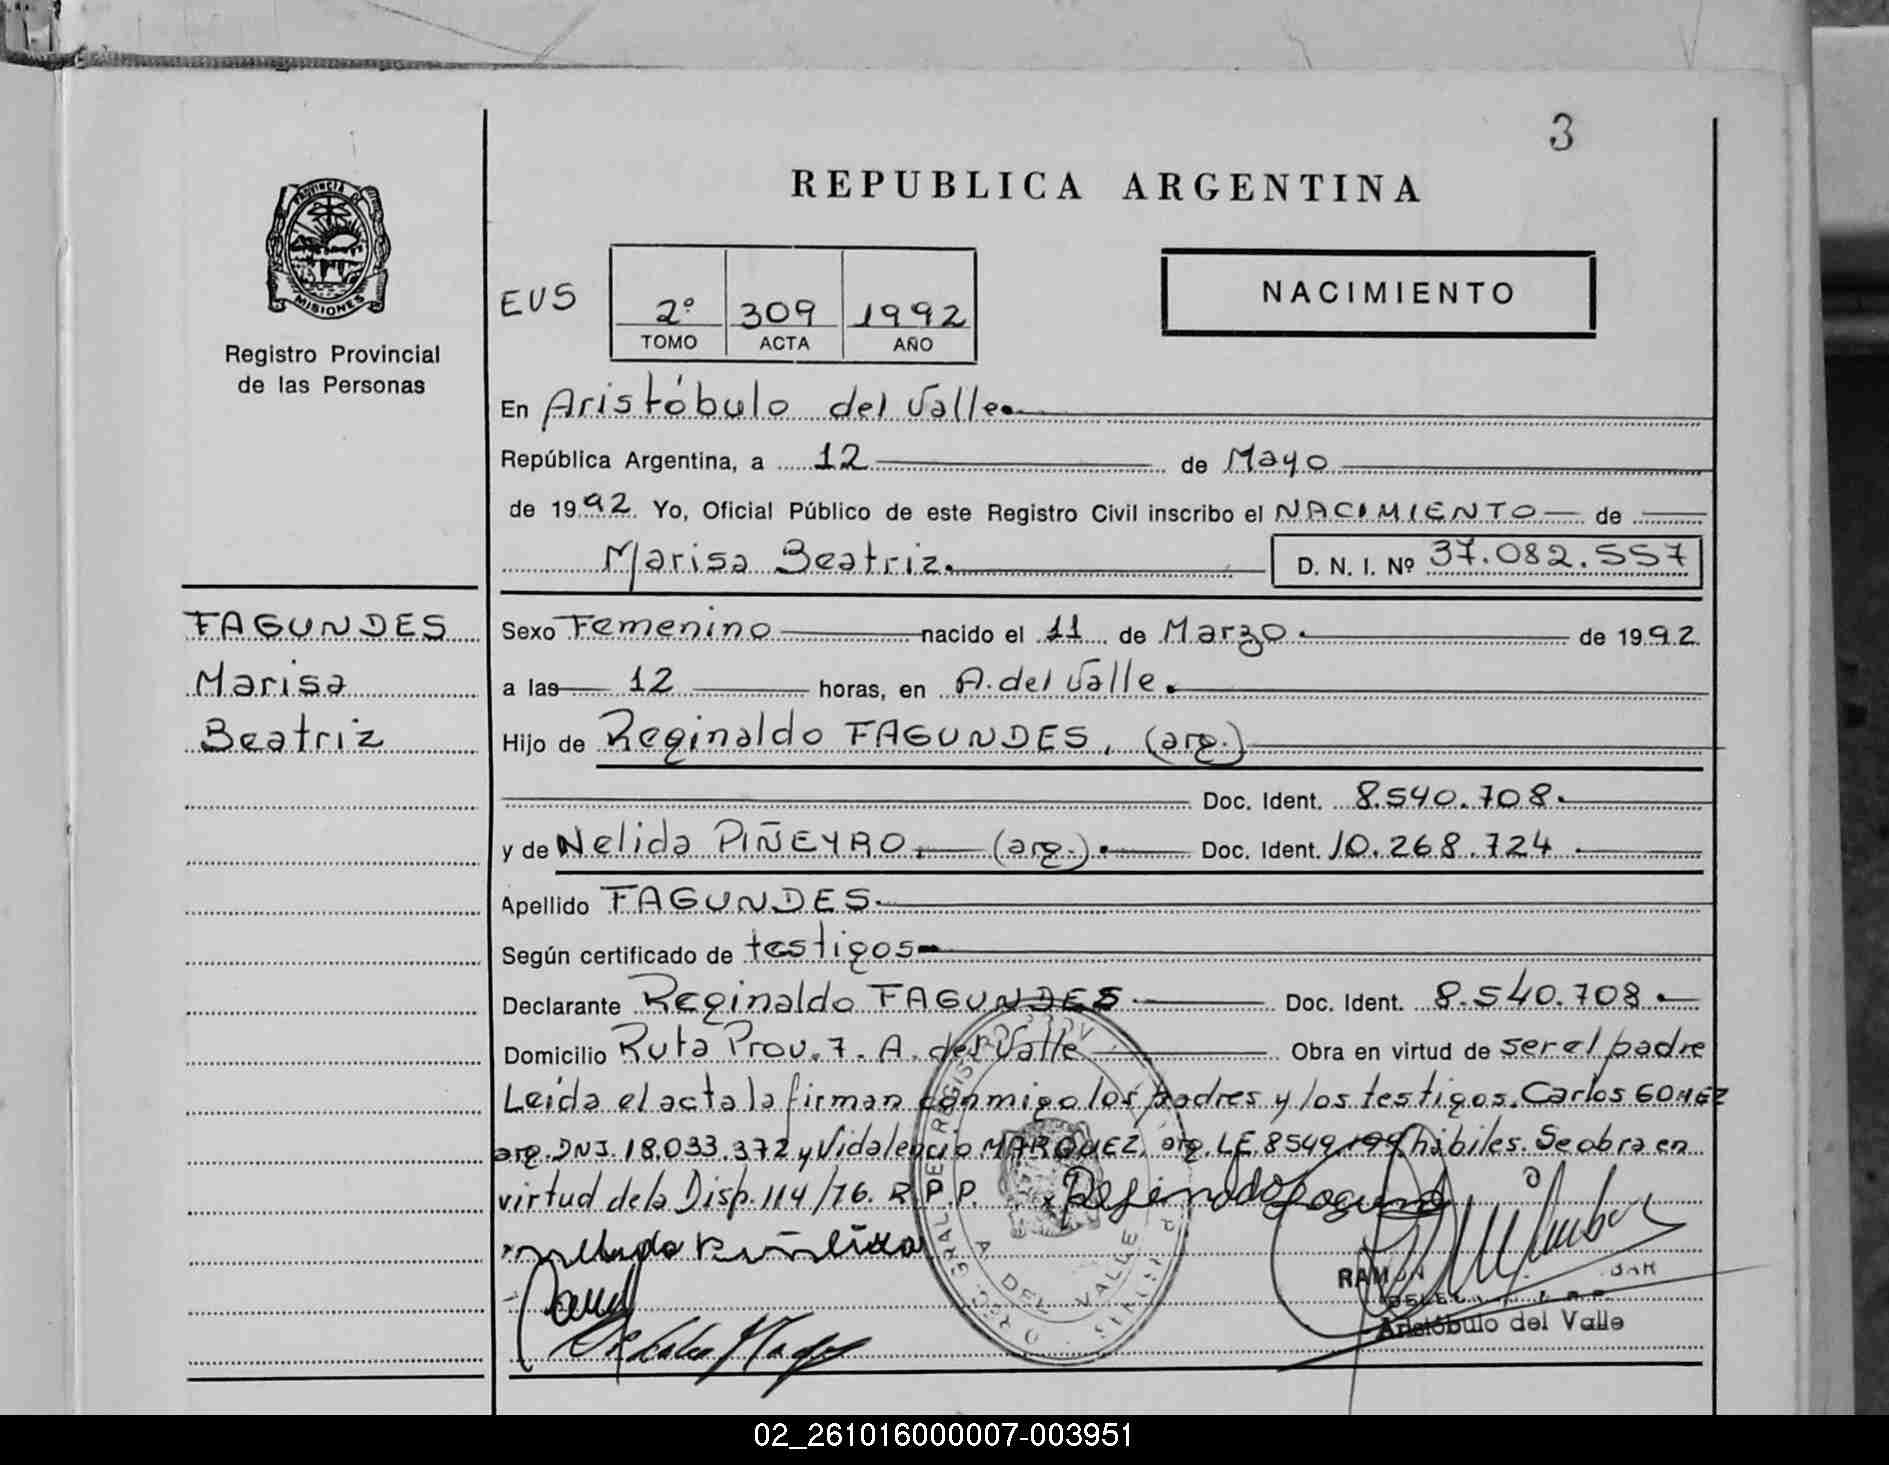 3
REPUBLICA ARGENTINA
PROVINCIA DE
MISIONES
Registro Provincial
de las Personas
EUS
2º 309 1992
TOMO ACTA AÑO
NACIMIENTO
En Aristóbulo del Valle.
República Argentina, a 12 de Mayo
de 1992. Yo, Oficial Público de este Registro Civil inscribo el NACIMIENTO de
Marisa Beatriz. D. N. I. Nº 37.082.557
FAGUNDES
Marisa
Beatriz
Sexo Femenino nacido el 11 de Marzo. de 1992.
a las 12 horas, en A. del Valle.
Hijo de Reginaldo FAGUNDES, (arg.)
Doc. Ident. 8.540.708.
y de Nelida PIÑEYRO, (arg.). Doc. Ident. 10.268.724
Apellido FAGUNDES.
Según certificado de testigos
Declarante Reginaldo FAGUNDES. Doc. Ident. 8.540.708.
Domicilio Ruta Prov. 7. A. del Valle Obra en virtud de ser el padre
Leída el acta la firman conmigo los padres y los testigos. Carlos GOMEZ
arg. DNI. 18.033.372 y Vidalencio MARQUEZ, arg. LE. 8549.199 hábiles. Se obra en
virtud de la Disp. 114/76. R.P.P.
RAMON
Aristóbulo del Valle
A. DEL VALLE
02_261016000007-003951